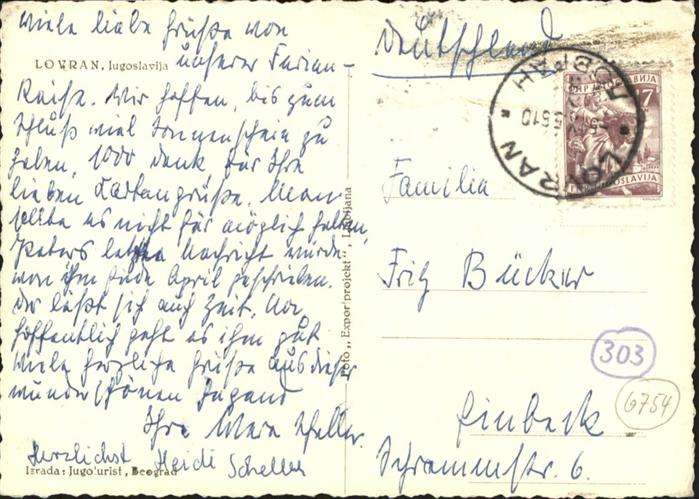 Viele liebe Grüße von
LOVRAN, Jugoslavija
unserer Ferien-
Reise. Wir hoffen, bis zum
Schluß viel Sonnenschein zu
haben. 1000 Dank für Ihre
lieben Kartengrüße. Man
sollte es nicht für möglich halten,
Peters letzte Nachricht wurde
von ihm Ende April geschrieben.
Der läßt sich auch Zeit.
hoffentlich geht es ihm gut
Viele herzliche Grüße aus dieser
wunderschönen Gegend
Ihre Scheller.
Herzlichst Heidi Scheller
Izrada: Jugoturist, Beograd
Foto „Exportprojekt", Ljubljana
Deutschland
LOVRAN
ЛОВРАН
17
JUGOSLAVIJA
Familie
Fritz Bücker
303
6754
Einbeck
Schrammstr. 6.